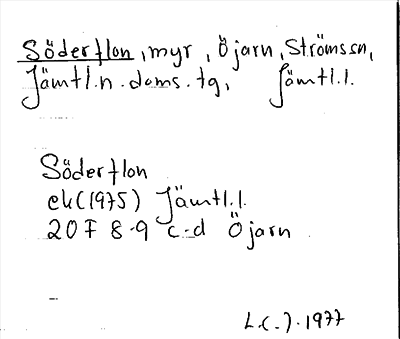 Söderflon, myr, Öjarn, Strömssn,
Jämtl.n.doms.tg, Jämtl.l.
Söderflon
ek(1975) Jämtl.l.
20 F 8-9 c-d Öjarn
L.(.).1977